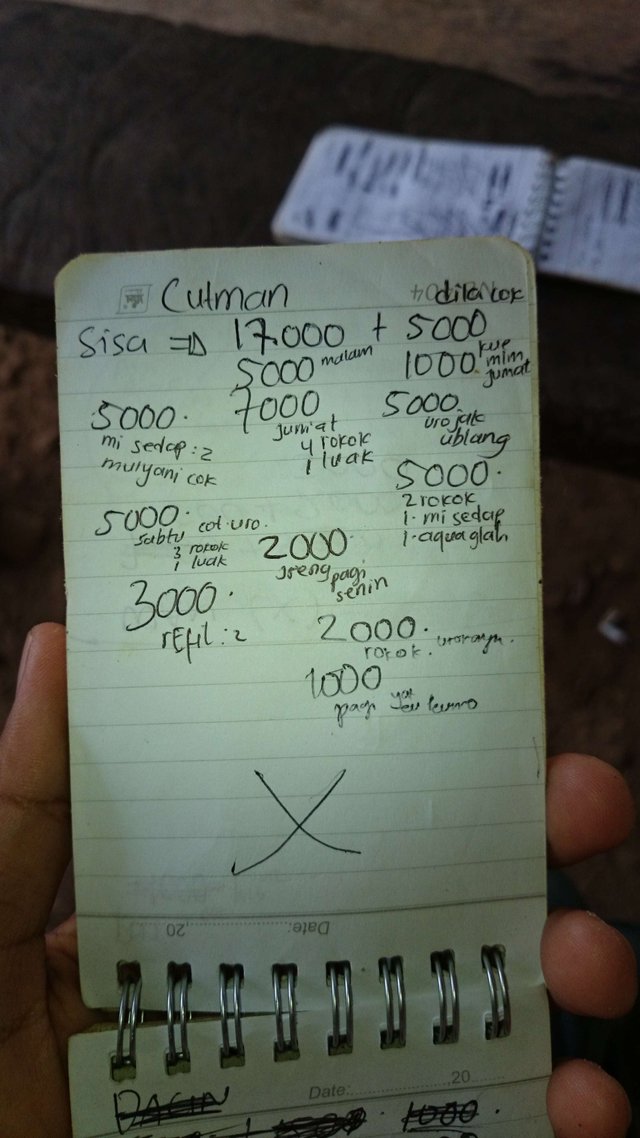 Cutman
dila cok
Sisa => 17.000 + 5000
5000 malam
1000 kue mlm jumat
5000.
mi sedap : 2
mulyani cok
7000
jum'at
4 rokok
1 luak
5000
uro jak
ublang
5000.
2 rokok
1. mi sedap
1. aqua glah
5000. cot uro.
sabtu
3 rokok
1 luak
2000
pagi
senin
3000.
rEfil : 2
2000.
rokok.
1000
pagi
X
Date:..................20
Date:..................20......
DAGIN
1000.